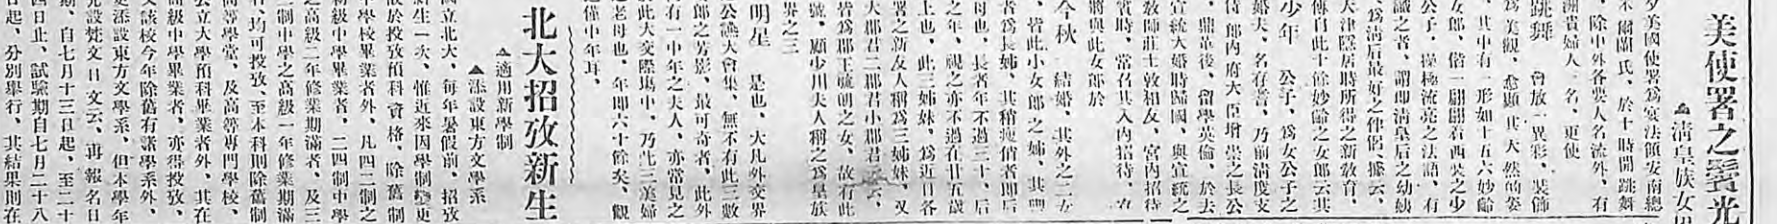 美使署之鬢光
▲清皇族女
夕美國使署爲宴法領安南總
不爾蘭氏、於十時開跳舞
、除中外各要人名流外、有
洲貴婦人一名、更使
跳舞 會放一異彩、裝飾
爲美觀、愈顯其天然的姿
、其中有一形如十五六妙齡
女郎、偕一翩翩着西裝之少
公子、操極流亮之法語、有
識之者、謂即清皇后之幼妹
、爲清后最好之伴侶、據云、
大津隱居時所得之新敎育、
傳自此十餘妙齡之女郎云其
婚夫、名存耆、乃前淸度支
少年 公子、爲女公子之
侍郎內府大臣增崇之長公
、鼎革後、留學英倫、於去
宣統大婚時歸國、與宣統之
敎師莊士敦相友、宮內招待
賓時、常召其入內招待、
將與此女郎於
今秋 結婚、其外之二女
、皆此小女郎之姊、其
者爲長姊、其稍瘦俏者即后
母也、長者年不過三十、后
之年、視之亦不過在廿五歲
上也、此三姊妹、爲近日各
署之新友人稱爲三姊妹、又
大郡君二郡君小郡君云、
皆爲郡王毓朗之女、故有此
號、顧少川夫人稱之爲皇族
界之三
明星 是也、大凡外交界
公讌大會集、無不有此三數
郎之芳影、最可奇者、此外
有一中年之夫人、亦常見之
於此大交際塲中、乃此三美婦
之老母也、年即六十餘矣、觀
過僅中年耳、
北大招攷新生
▲適用新學制
▲添設東方文學系
國立北大、每年暑假前、招攷
新生一次、惟近來因學制變更
故於投攷預科資格、除舊制
中學校畢業者外、凡四二制之
初級中學畢業者、二四制中學
之高級二年修業期滿者、及三
三制中學之高級一年修業期滿
、均可投攷、至本科則除舊制
高等學堂、及高等專門學校、
公立大學預科畢業者外、其在
高級中學畢業者、亦得投攷、
又該校今年除舊有諸學系外、
更添設東方文學系、但本學年
先設梵文日文云、再報名日
期、自七月十三日起、至二十
四日止、試驗期自七月二十八
日起、分別舉行、其結果則在